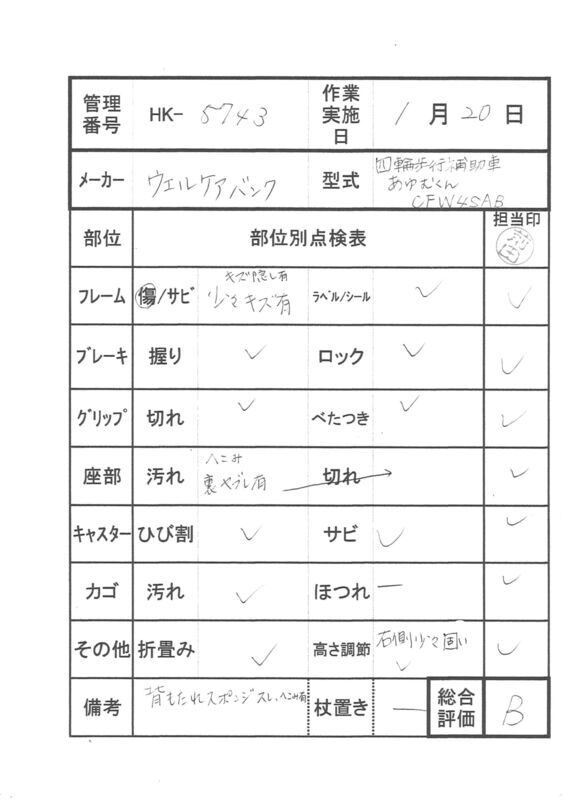 管理番号 HK- 5743 作業実施日 1月20日
メーカー ウェルケアバンク 型式 四輪歩行補助車
あゆむくん
CFW4SAB
部位 部位別点検表 担当印
キズ隠し有
フレーム 傷/サビ 少々キズ有 ラベル/シール ✓ ✓
ブレーキ 握り ✓ ロック ✓ ✓
グリップ 切れ ✓ べたつき ✓ ✓
へこみ
座部 汚れ 裏ヤブレ有 → 切れ ✓
キャスター ひび割 ✓ サビ ✓ ✓
カゴ 汚れ ✓ ほつれ ー ✓
その他 折畳み ✓ 高さ調節 右側少々固い ✓ ✓
備考 背もたれスポンジスレ、へこみ有 杖置き ー 総合評価 B